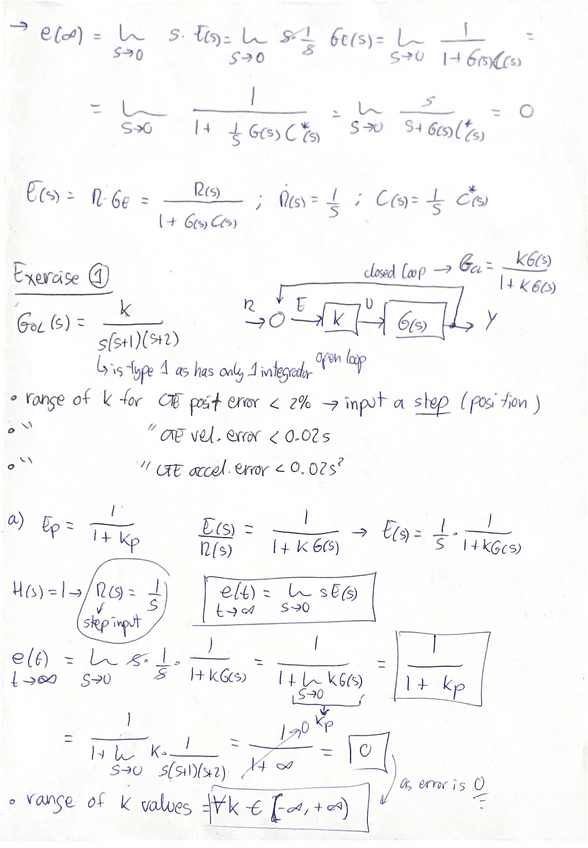 → e(∞) = lim s→0 s·E(s) = lim s→0 s·1/s Ge(s) = lim s→0 1/(1+G(s)C(s)) =
= lim s→0 1/(1 + 1/s G(s) C*(s)) = lim s→0 s/(s+G(s)C*(s)) = 0
E(s) = R·Ge = R(s)/(1+G(s)C(s)) ; R(s) = 1/s ; C(s) = 1/s C*(s)
closed loop → G_CL = KG(s)/(1+KG(s))
Exercise ①
G_OL(s) = k/(s(s+1)(s+2))
R → O E → K U → G(s) → Y
open loop
↳ is type 1 as has only 1 integrator
• range of k for CTE posit error < 2% → input a step (position)
• " " CTE vel. error < 0.02s
• " " CTE accel. error < 0.02s²
a) Ep = 1/(1+kp) E(s)/R(s) = 1/(1+KG(s)) → E(s) = 1/s · 1/(1+KG(s))
H(s)=1 → R(s) = 1/s e(t) t→∞ = lim s→0 sE(s)
step input
e(t) t→∞ = lim s→0 s·1/s · 1/(1+KG(s)) = 1/(1+lim s→0 KG(s)) = 1/(1+kp)
kp
= 1/(1+lim s→0 K·1/(s(s+1)(s+2))) = 1/(1+∞) → 0 = 0
as error is 0
• range of k values = ∀k ∈ [-∞, +∞)